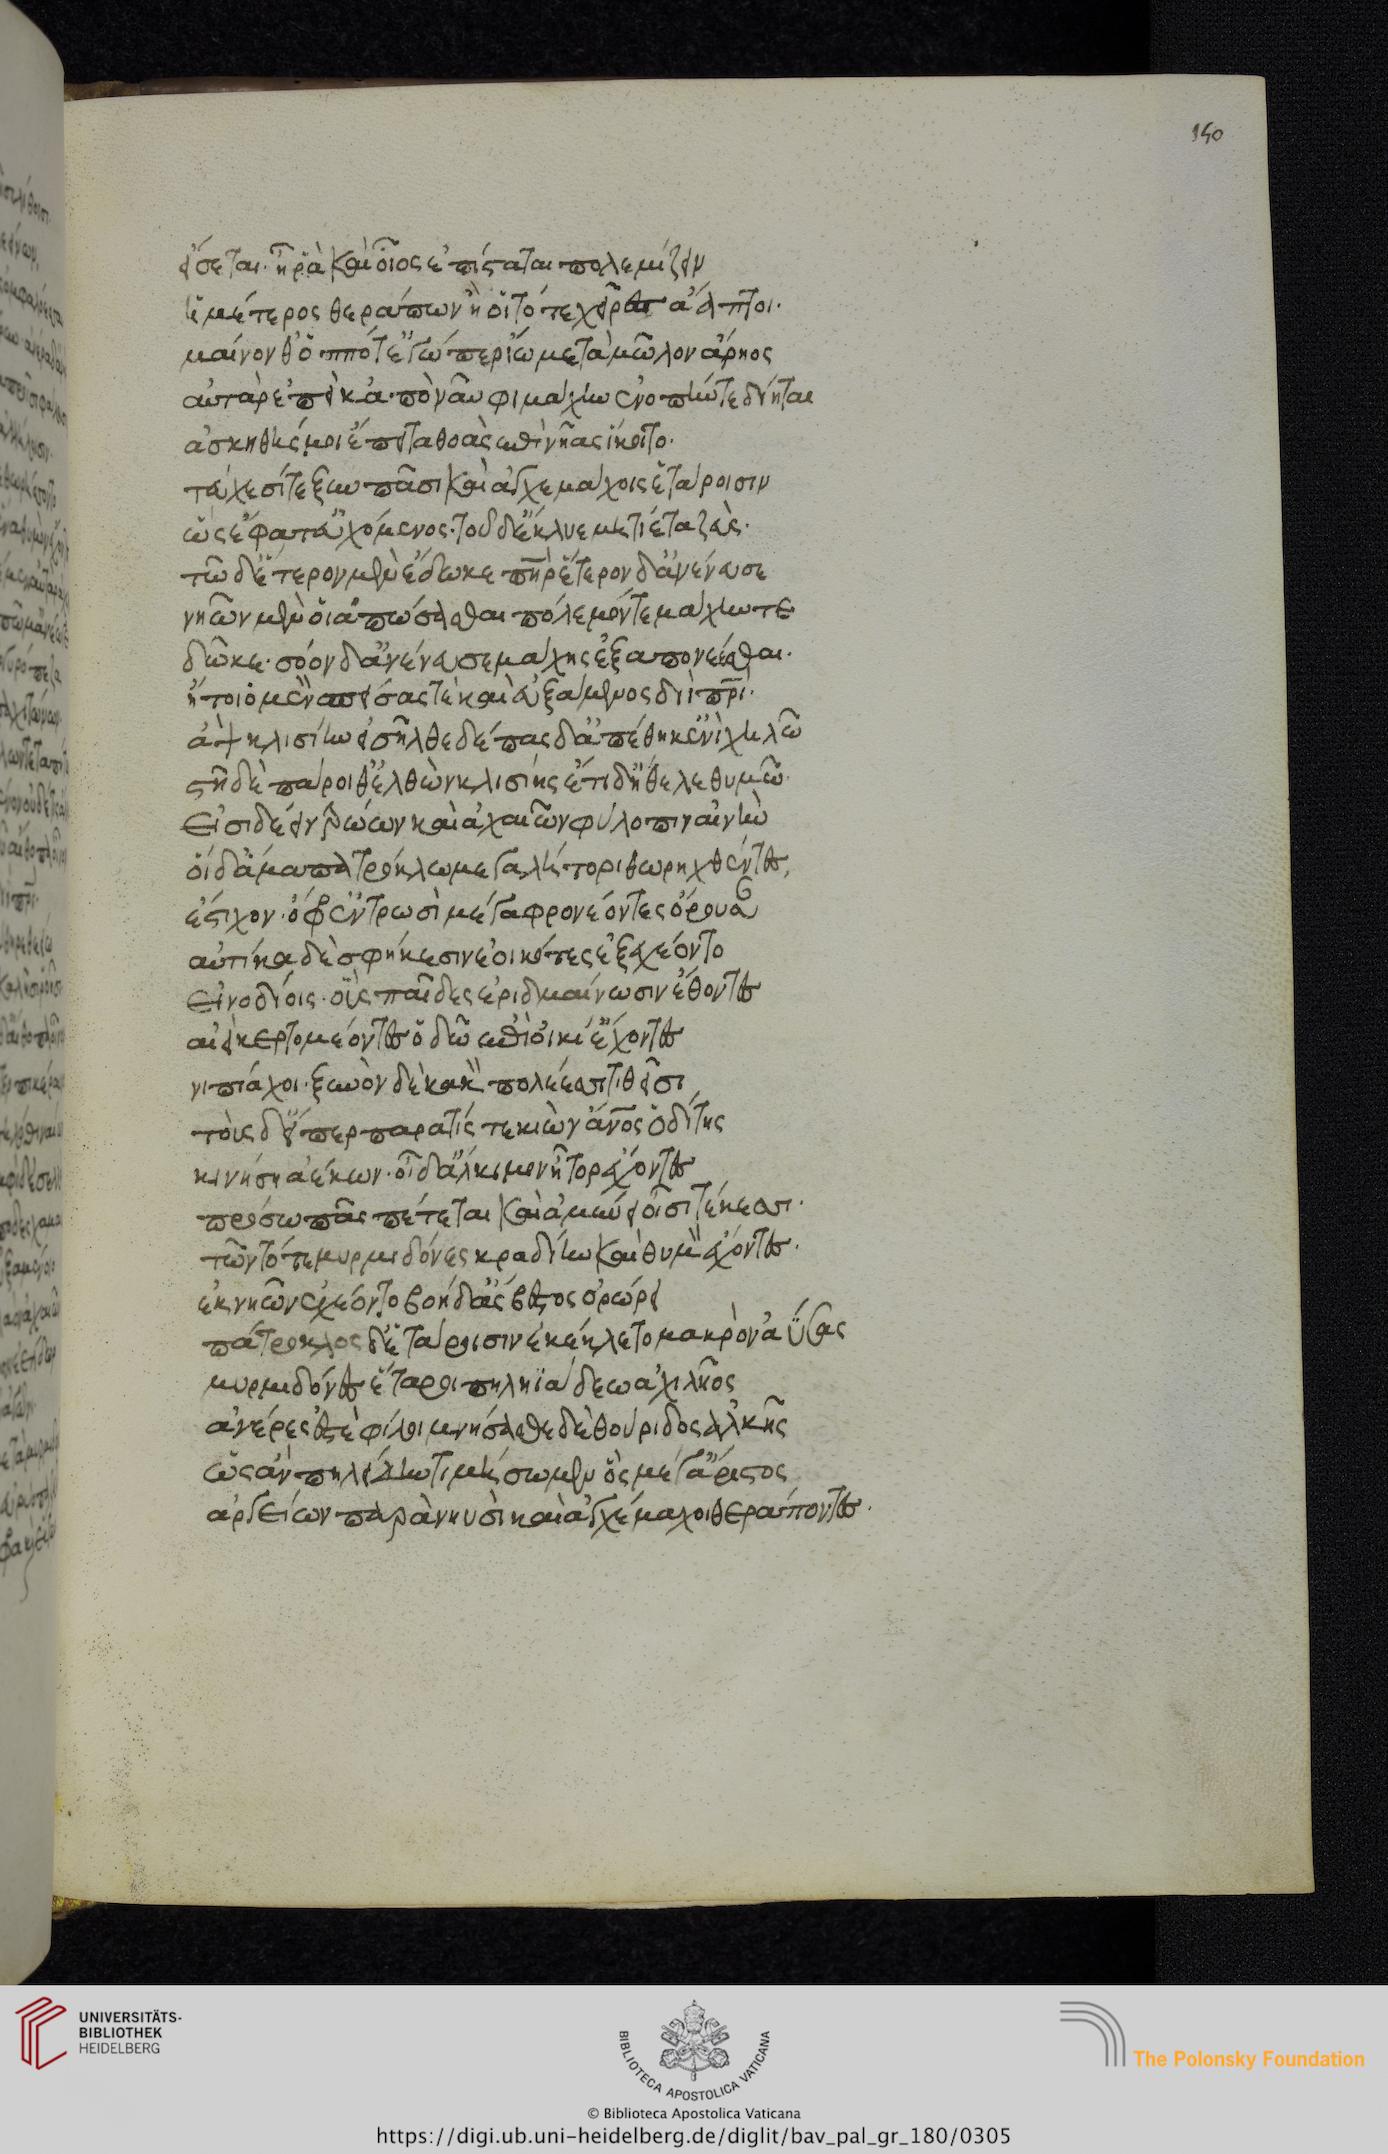 150
εἴσεται· ἦ ῥὰ καὶ οἷος ἐπίσταται πολεμίζειν
ἡμέτερος θεράπων ἢ οἵ τότε χεῖρες ἄαπτοι·
μαίνονθ' ὁππότ' ἐγώ περ ἴω μετὰ μῶλον ἄρηος
αὐτὰρ ἐπεί κ' ἀπὸ ναῦφι μάχην ἐνοπήν τε δίηται
ἀσκηθής μοι ἔπειτα θοὰς ἐπὶ νῆας ἵκοιτο·
τεύχεσί τε ξὺν πᾶσι καὶ ἀγχεμάχοις ἑτάροισιν
ὣς ἔφατ' εὐχόμενος· τοῦ δ' ἔκλυε μητιέτα ζεύς·
τῷ δ' ἕτερον μὲν ἔδωκε πατὴρ ἕτερον δ' ἀνένευσε
νηῶν μὲν οἱ ἀπώσασθαι πόλεμόν τε μάχην τε
δῶκε· σόον δ' ἀνένευσε μάχης ἐξαπονέεσθαι·
ἤτοι ὁ μὲν σπείσας τε καὶ εὐξάμενος διὶ πατρί·
ἂψ κλισίην εἰσῆλθε δέπας δ' ἀπέθηκ' ἐνὶ χηλῷ
στῆ δὲ πάροιθ' ἐλθὼν κλισίης ἔτι δ' ἤθελε θυμῷ
εἰσιδέειν τρώων καὶ ἀχαιῶν φύλοπιν αἰνὴν
οἱ δ' ἅμα πατρόκλῳ μεγαλήτορι θωρηχθέντες,
ἔστιχον· ὄφρ' ἐν τρωσὶ μέγα φρονέοντες ὄρουσαν
αὐτίκα δὲ σφήκεσιν ἐοικότες ἐξεχέοντο
εἰνοδίοις· οὓς παῖδες ἐριδμαίνωσιν ἔθοντες
αἰεὶ κερτομέοντες ὁδῷ ἐπὶ οἰκί' ἔχοντας
νηπίαχοι· ξυνὸν δὲ κακὸν πολέεσσι τιθεῖσι
τοὺς δ' εἴπερ παρά τίς τε κιὼν ἄνθρωπος ὁδίτης
κινήσῃ ἀέκων· οἱ δ' ἄλκιμον ἦτορ ἔχοντες
πρόσω πᾶς πέτεται καὶ ἀμύνει οἷσι τέκεσσι·
τῶν τότε μυρμιδόνες κραδίην καὶ θυμὸν ἔχοντες·
ἐκ νηῶν ἐχέοντο βοὴ δ' ἄσβεστος ὀρώρει
πάτροκλος δ' ἑτάροισιν ἐκέκλετο μακρὸν ἀΰσας
μυρμιδόνες ἕταροι πηληϊάδεω ἀχιλῆος
ἀνέρες ἔστε φίλοι μνήσασθε δὲ θούριδος ἀλκῆς
ὡς ἂν πηλείδην τιμήσωμεν ὃς μέγ' ἄριστος
ἀργείων παρὰ νηυσὶ καὶ ἀγχέμαχοι θεράποντες·
UNIVERSITÄTS-
BIBLIOTHEK
HEIDELBERG
BIBLIOTECA APOSTOLICA VATICANA
The Polonsky Foundation
© Biblioteca Apostolica Vaticana
https://digi.ub.uni-heidelberg.de/diglit/bav_pal_gr_180/0305